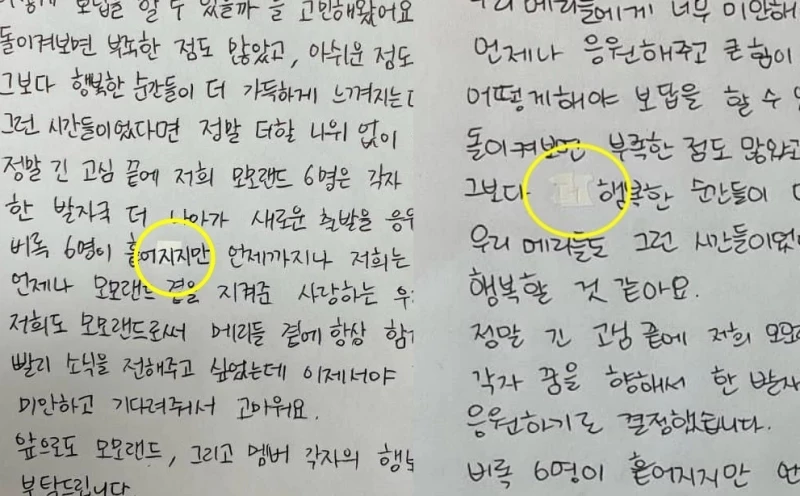 보답을 할 수 있을까 를 고민해왔어요
돌이켜보면 부족한 점도 많았고, 아쉬운 점도
그보다 행복한 순간들이 더 가득하게 느껴지는데
그런 시간들이였다면 정말 더할 나위 없이
정말 긴 고심 끝에 저희 모모랜드 6명은 각자
한 발자국 더 나아가 새로운 출발을 응원
비록 6명이 흩어지지만 언제까지나 저희는
언제나 모모랜드 곁을 지켜준 사랑하는 우
저희도 모모랜드로써 메리들 곁에 항상 함께
빨리 소식을 전해주고 싶었는데 이제서야
미안하고 기다려줘서 고마워요.
앞으로도 모모랜드, 그리고 멤버 각자의 행보
부탁드립니다
우리 메리들에게 너무 미안해
언제나 응원해주고 큰 힘이
어떻게해야 보답을 할 수 있
돌이켜보면 부족한 점도 많았고
그보다 더 행복한 순간들이
우리 메리들도 그런 시간들이었
행복할 것 같아요.
정말 긴 고심 끝에 저희 모모
각자 꿈을 향해서 한 발자
응원하기로 결정했습니다.
비록 6명이 흩어지지만 언